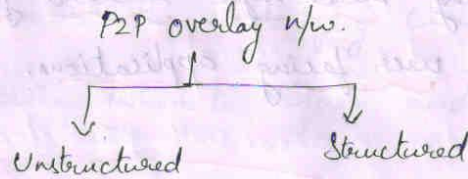 P2P overlay n/w.
Unstructured Structured